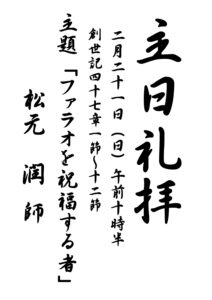 主日礼拝
二月二十一日（日）午前十時半
創世記四十七章一節〜十二節
主題「ファラオを祝福する者」
松元　潤師